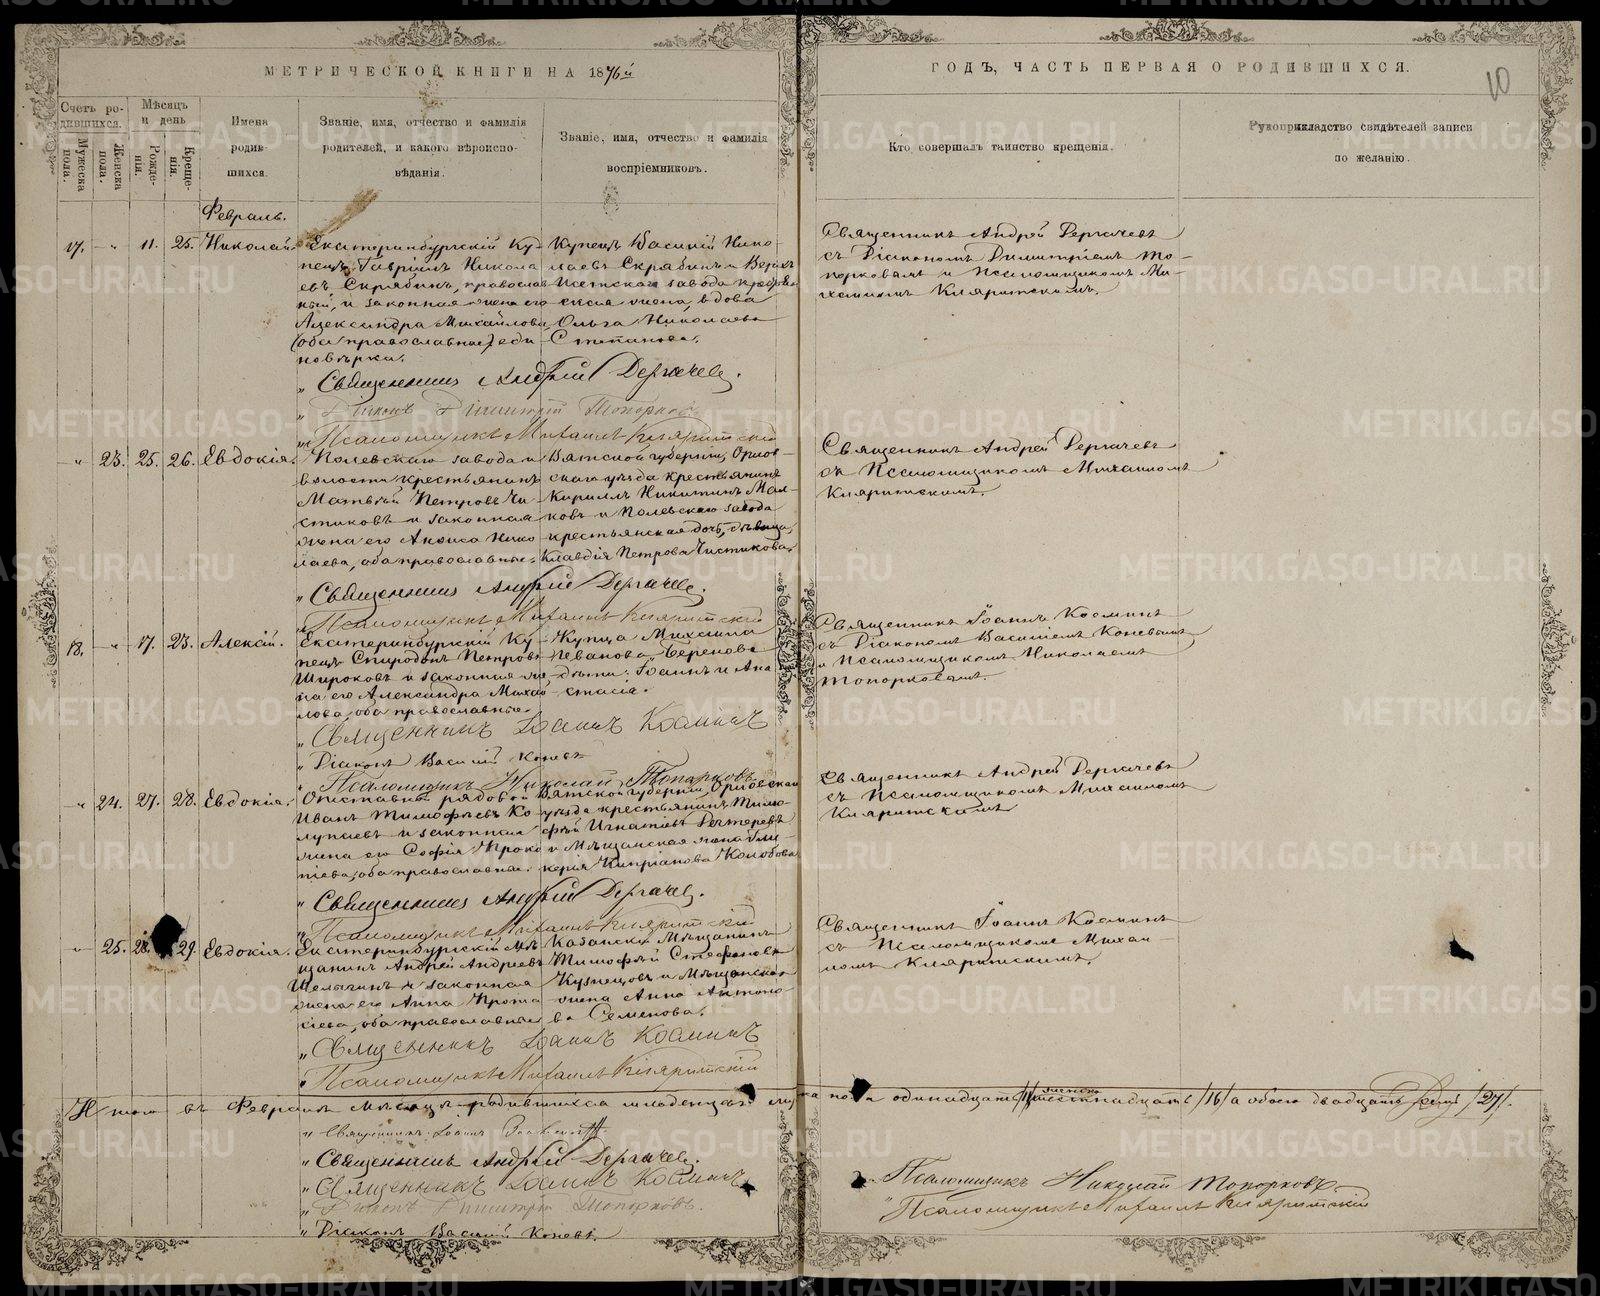 МЕТРИЧЕСКОЙ КНИГИ НА 1876й
ГОДЪ, ЧАСТЬ ПЕРВАЯ О РОДИВШИХСЯ.
10
Счетъ ро-
дившихся.
Мужеска
пола.
Женска
пола.
Мѣсяцъ
и день
Рожде-
нія.
Креще-
нія.
Имена
родив-
шихся.
Званіе, имя, отчество и фамилія
родителей, и какого вѣроиспо-
вѣданія.
Званіе, имя, отчество и фамилія
воспріемниковъ.
Кто совершалъ таинство крещенія.
Рукоприкладство свидѣтелей записи
по желанію.
Февраль.
17. — " 11. 25. Николай.
Екатеринбургскій Ку-
пецъ Гавріилъ Никола
евъ Скрябинъ, православ
ный, и законная жена его
Александра Михайлова
(оба православные) еди
новѣрка.
Купецъ Василій Нико-
лаевъ Скрябинъ и Верхъ
Исетскаго завода
вдова
Ольга Николаева
Степанова.
Священникъ Андрей Дергачевъ
съ Діакономъ Димитріемъ То-
порковымъ и Псаломщикомъ Ми-
хаиломъ
„ Священникъ Андрей Дергачевъ.
„ Діаконъ Димитрій Топорковъ
„ Псаломщикъ Михаилъ
— " 23. 25. 26. Евдокія.
Полевскаго завода и
волости крестьянинъ
Матвѣй Петровъ Чи-
стиковъ и законная
жена его Анфиса Нико
лаева, оба православные.
Вятской губерніи, Орлов-
скаго уѣзда крестьянинъ
Кириллъ Никитинъ
и Полевскаго завода
крестьянская дочь, дѣвица
Клавдія Петрова Чистикова.
Священникъ Андрей Дергачевъ
съ Псаломщикомъ Михаиломъ
„ Священникъ Андрей Дергачевъ.
„ Псаломщикъ Михаилъ
18. — " 17. 23. Алексій.
Екатеринбургскій Ку-
пецъ Спиридонъ Петровъ
Широковъ и законная же
на его Александра Михаи
лова, оба православные.
Купца Михаила
Иванова
дѣти: Іоаннъ и Ана
стасія.
Священникъ Іоаннъ Косминъ
съ Діакономъ Василіемъ Коневымъ
и Псаломщикомъ Николаемъ
Топорковымъ.
„ Священникъ Іоаннъ Косминъ
„ Діаконъ Василій Коневъ
„ Псаломщикъ Николай Топорковъ
— " 24. 27. 28. Евдокія.
Отставной рядовой
Иванъ Тимофѣевъ Ко-
лупаевъ и законная
жена его Софія Проко
пьева, оба православные.
Вятской губерніи, Орловскаго
уѣзда крестьянинъ Тимо-
фей Игнатіевъ
и Мѣщанская жена Гли-
керія Кипріанова Колобова
Священникъ Андрей Дергачевъ
съ Псаломщикомъ Михаиломъ
„ Священникъ Андрей Дергачевъ.
„ Псаломщикъ Михаилъ
— " 25. 28. 29. Евдокія.
Екатеринбургскій Мѣ
щанинъ Андрей Андреевъ
и законная
жена его Анна Прота
сіева, оба православные
Казанскій Мѣщанинъ
Тимофей Стефановъ
Кузнецовъ и Мѣщанская
жена Анна Антоно-
ва Семенова.
Священникъ Іоаннъ Косминъ
съ Псаломщикомъ Михаи-
ломъ
„ Священникъ Іоаннъ Косминъ
„ Псаломщикъ Михаилъ
Итого въ Февралѣ Мѣсяцѣ родившихся младенцевъ: пола одинадцать /11/ женска шестнадцать /16/ а обоего двадцать семь /27/.
„ Священникъ Іоаннъ
„ Священникъ Андрей Дергачевъ.
„ Священникъ Іоаннъ Косминъ
„ Діаконъ Димитрій Топорковъ.
„ Діаконъ Василій Коневъ.
Псаломщикъ Николай Топорковъ
„ Псаломщикъ Михаилъ
METRIKI.GASO-URAL.RU